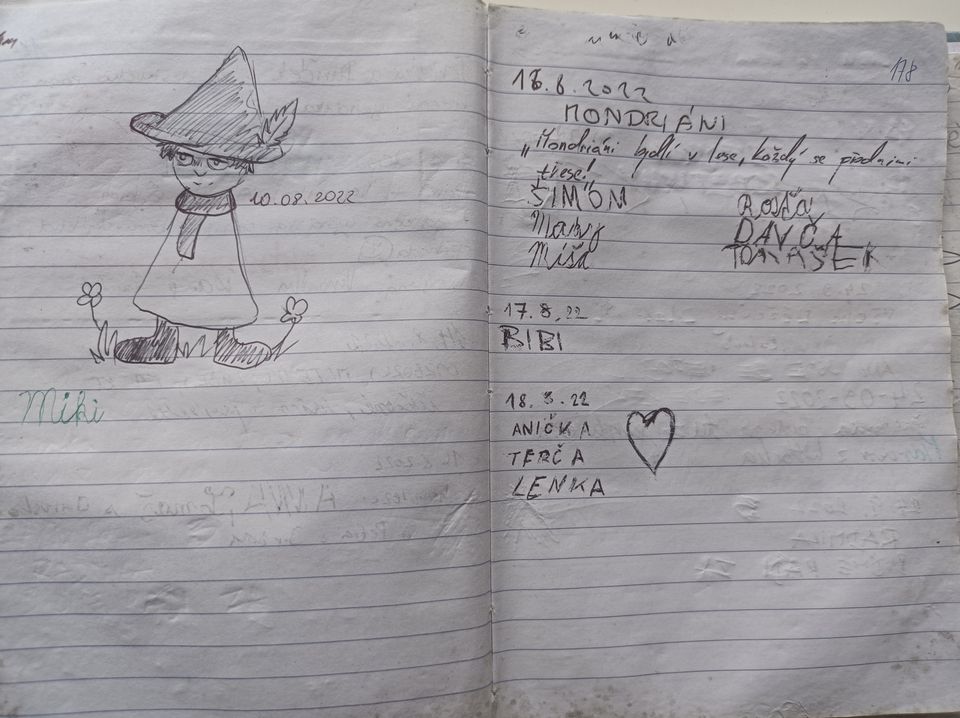 10.08.2022
Miki
178
16.8.2022
MONDRIÁNI
„Mondriáni bydlí v lese, každý se přednimi
třese!
ŠIMON
Maky
Míša
DAVČA
TOMÁŠEK
17.8.22
BIBI
18.8.22
ANIČKA
TERČA
LENKA